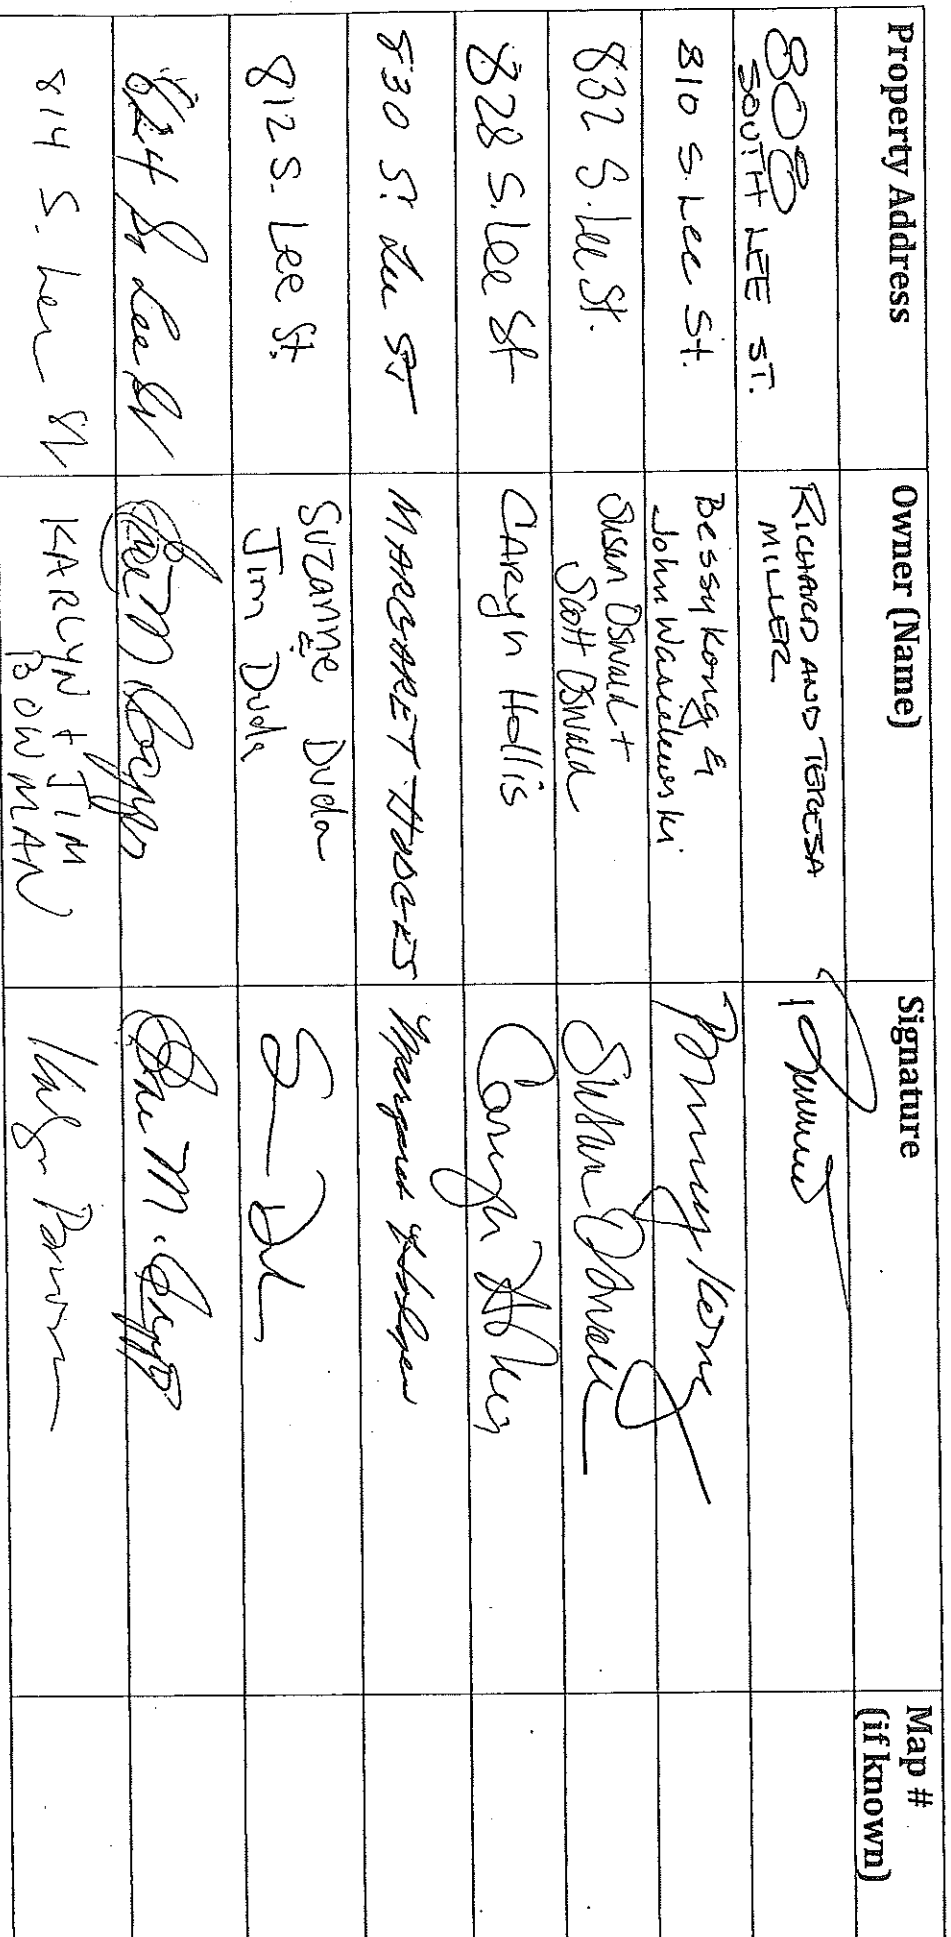 Property Address
Owner (Name)
Signature
Map #
(if known)
808
SOUTH LEE ST.
RICHARD AND TERESA
MILLER
810 S. Lee St.
Bessy Kong &
John Wasilewski
832 S. Lee St.
Susan Oswald +
Scott Oswald
Susan Oswald
828 S. Lee St
CARYN Hollis
Caryn Hollis
830 S. Lee St
MARGARET HODGES
Margaret Hodges
812 S. Lee St.
Suzanne Duda
&
Jim Duda
824 So Lee St
M.
M.
814 S. Lee St
KARLYN + JIM
BOWMAN
Bowman